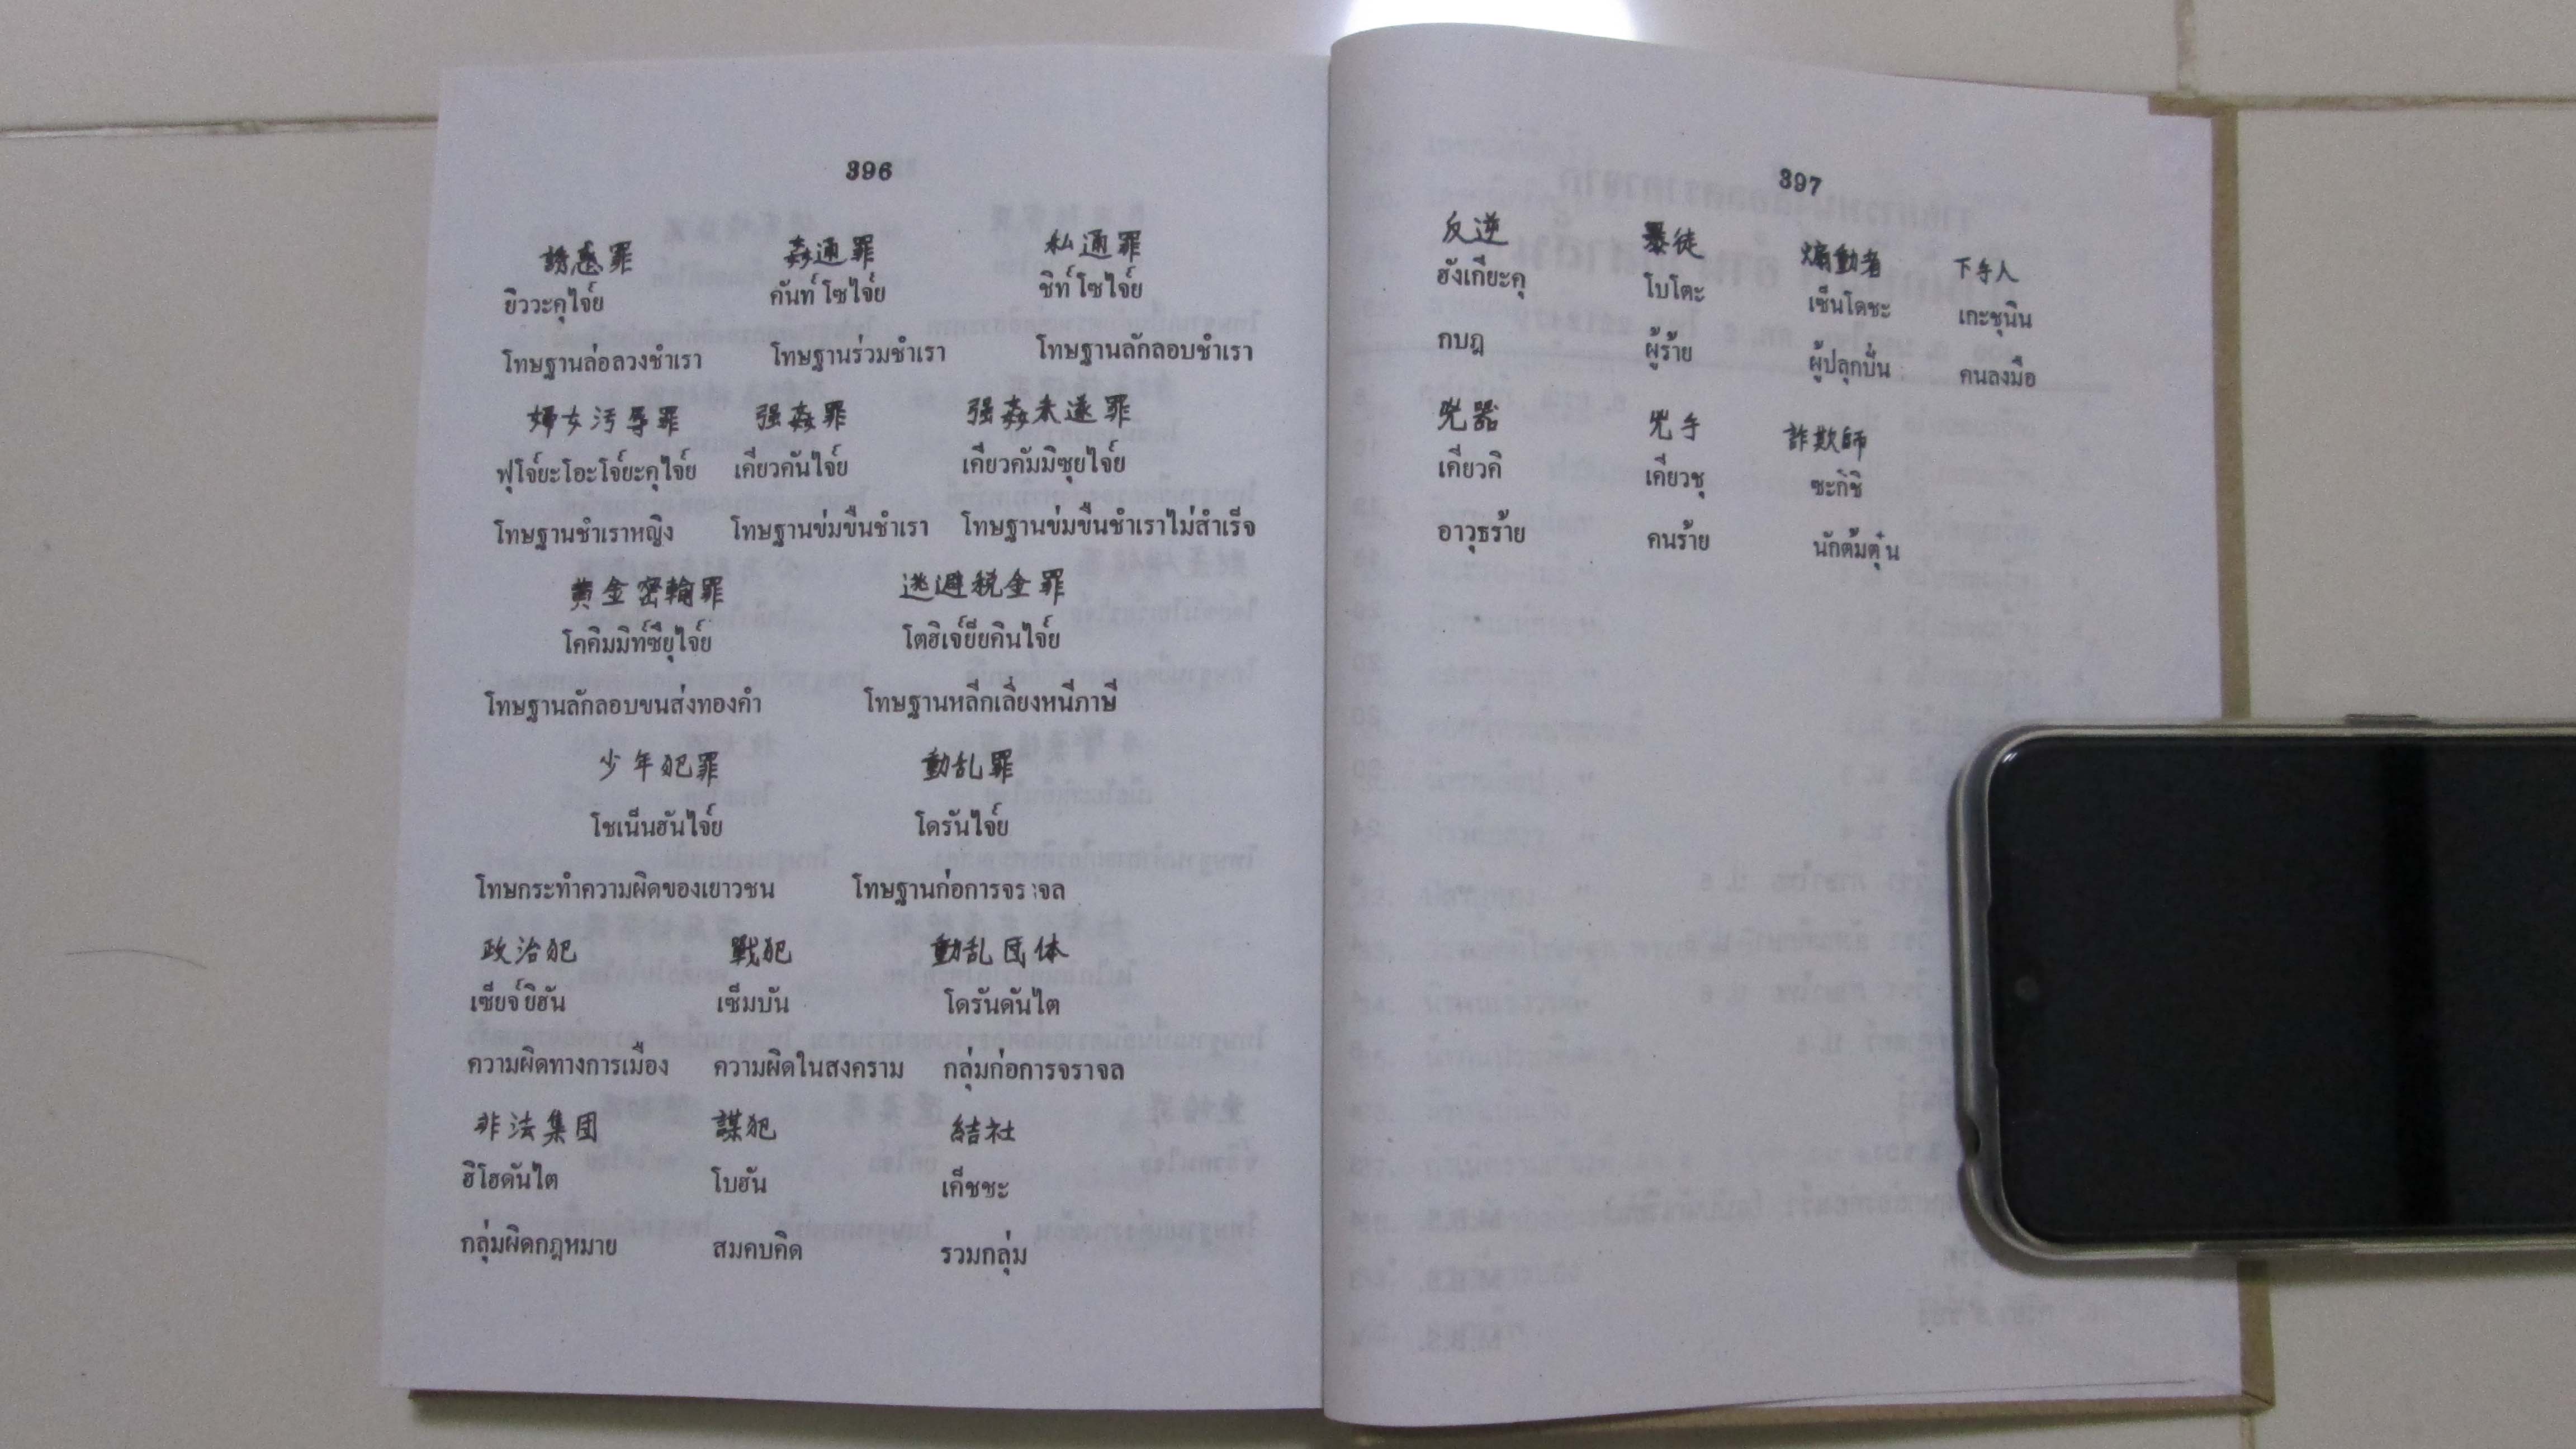 396
誘惑罪 姦通罪 私通罪
ยิววะคุไจ๎ย คันท์โซไจ๎ย ชิท์โซไจ๎ย
โทษฐานล่อลวงชำเรา โทษฐานร่วมชำเรา โทษฐานลักลอบชำเรา
婦女汚辱罪 强姦罪 强姦未遂罪
ฟุโจ๎ยะโอะโจ๎ยะคุไจ๎ย เคียวคันไจ๎ย เคียวคัมมิซุยไจ๎ย
โทษฐานชำเราหญิง โทษฐานข่มขืนชำเรา โทษฐานข่มขืนชำเราไม่สำเร็จ
黄金密輸罪 逃避税金罪
โคคิมมิท์ซียุไจ๎ย โตฮิเจ๎ย็ยคินไจ๎ย
โทษฐานลักลอบขนส่งทองคำ โทษฐานหลีกเลี่ยงหนีภาษี
少年犯罪 動乱罪
โชเน็นฮันไจ๎ย โดรันไจ๎ย
โทษกระทำความผิดของเยาวชน โทษฐานก่อการจราจล
政治犯 戰犯 動乱団体
เซียจ๎ยิฮัน เซ็มบัน โดรันดันไต
ความผิดทางการเมือง ความผิดในสงคราม กลุ่มก่อการจราจล
非法集団 謀犯 結社
ฮิโฮดันไต โบฮัน เค็ชชะ
กลุ่มผิดกฎหมาย สมคบคิด รวมกลุ่ม
397
反逆 暴徒 煽動者 下手人
ฮังเกียะคุ โบโตะ เซ็นโดชะ เกะชุนิน
กบฎ ผู้ร้าย ผู้ปลุกปั่น คนลงมือ
兇器 兇手 詐欺師
เคียวคิ เคียวชุ ซะกิชิ
อาวุธร้าย คนร้าย นักต้มตุ๋น